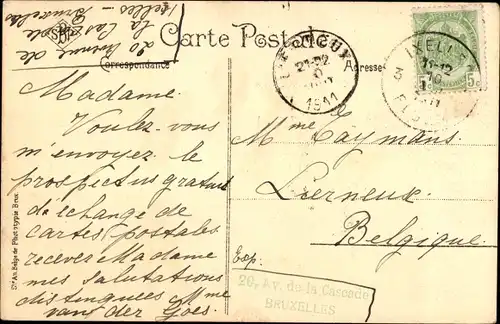 20 Avenue de
la Cascade
Ixelles - Bruxelles
Carte Postale
Correspondance
Adresse
Madame
Voulez-vous
m'envoyez le
prospectus gratuit
d'echange de
cartes postales
recever Madame
mes salutations
distinguées Mme
van der Goes.
Mme Caymans
Lierneux
Belgique
Exp:
20, Av. de la Cascade
BRUXELLES
LIERNEUX
21-12
1911
IXELLES
21-12
10
1911
3
ELSENE
5c
Sté An. Belge de Phototypie Brux.